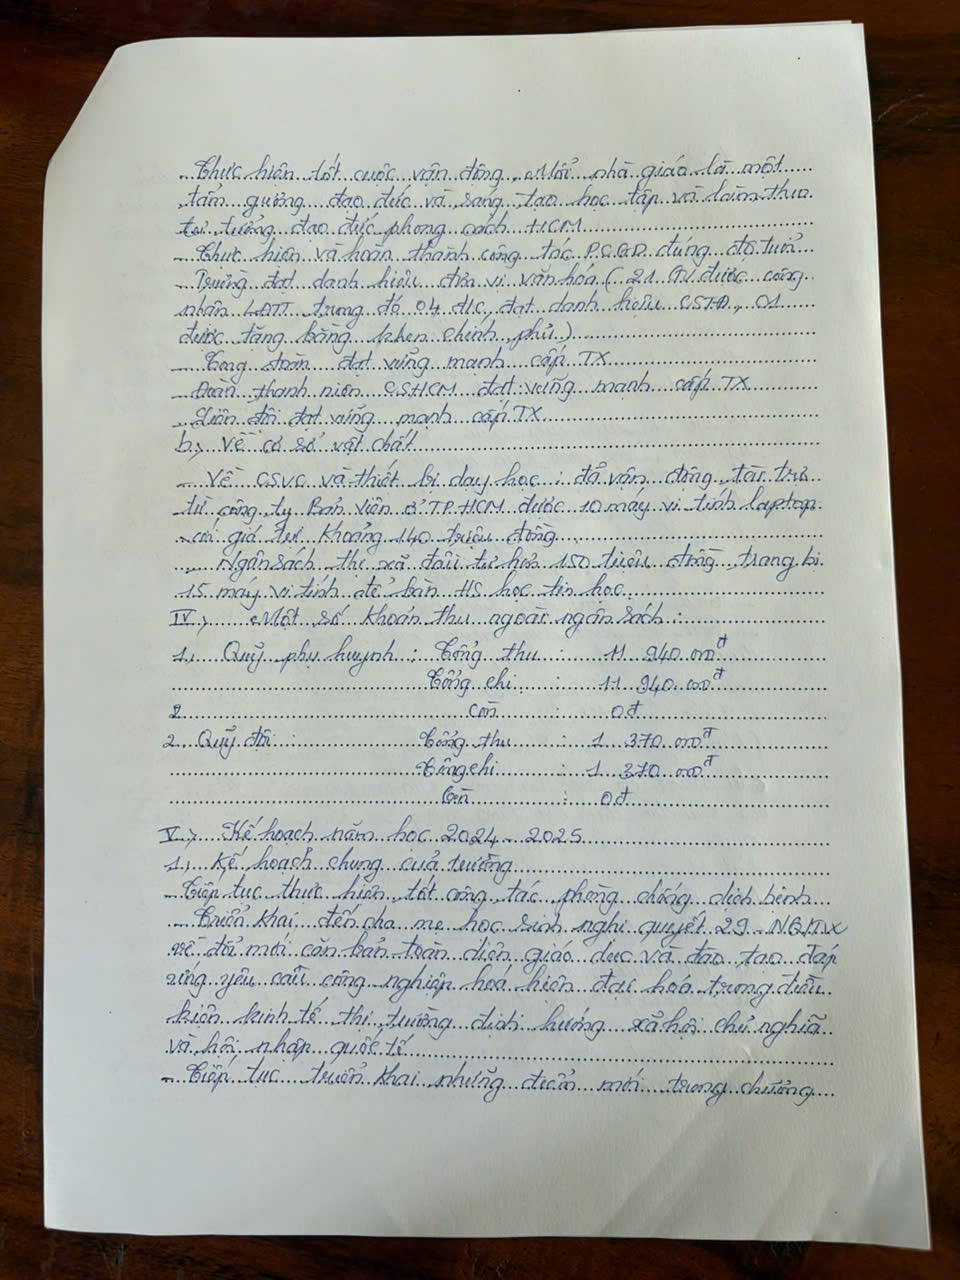 - Thực hiện tốt cuộc vận động "Mỗi nhà giáo là một
tấm gương đạo đức và sáng tạo học tập và làm theo
tư tưởng đạo đức phong cách HCM
- Thực hiện và hoàn thành công tác P.C.G.D đúng độ tuổi
- Trường đạt danh hiệu đơn vị văn hóa (21 GV được công
nhận LĐTT trong đó 04 đ/c đạt danh hiệu CSTĐ, 01
được tặng bằng khen chính phủ)
- Công đoàn đạt vững mạnh cấp TX
- Đoàn thanh niên CSHCM đạt vững mạnh cấp TX
- Liên đội đạt vững mạnh cấp TX
b> Về cơ sở vật chất
- Về CSVC và thiết bị dạy học : đã vận động tài trợ
từ công ty Bản Viên ở TP.HCM được 10 máy vi tính laptop
có giá trị khoảng 140 triệu đồng
- Ngân sách thị xã đầu tư hơn 150 triệu đồng trang bị
15 máy vi tính để bàn HS học tin học
IV> Một số khoản thu ngoài ngân sách :
1. Quỹ phụ huynh : Tổng thu : 11 940 000đ
Tổng chi : 11 940 000đ
2 Còn : 0đ
2. Quỹ đội : Tổng thu : 1 370 000đ
Tổng chi : 1 370 000đ
Còn : 0đ
V> Kế hoạch năm học 2024 - 2025
1. Kế hoạch chung của trường
- Tiếp tục thực hiện tốt công tác phòng chống dịch bệnh
- Triển khai đến cha mẹ học sinh nghị quyết 29 - NQ/TW
về đổi mới căn bản toàn diện giáo dục và đào tạo đáp
ứng yêu cầu công nghiệp hoá hiện đại hoá trong điều
kiện kinh tế thị trường định hướng xã hội chủ nghĩa
và hội nhập quốc tế
- Tiếp tục triển khai những điểm mới trong chương